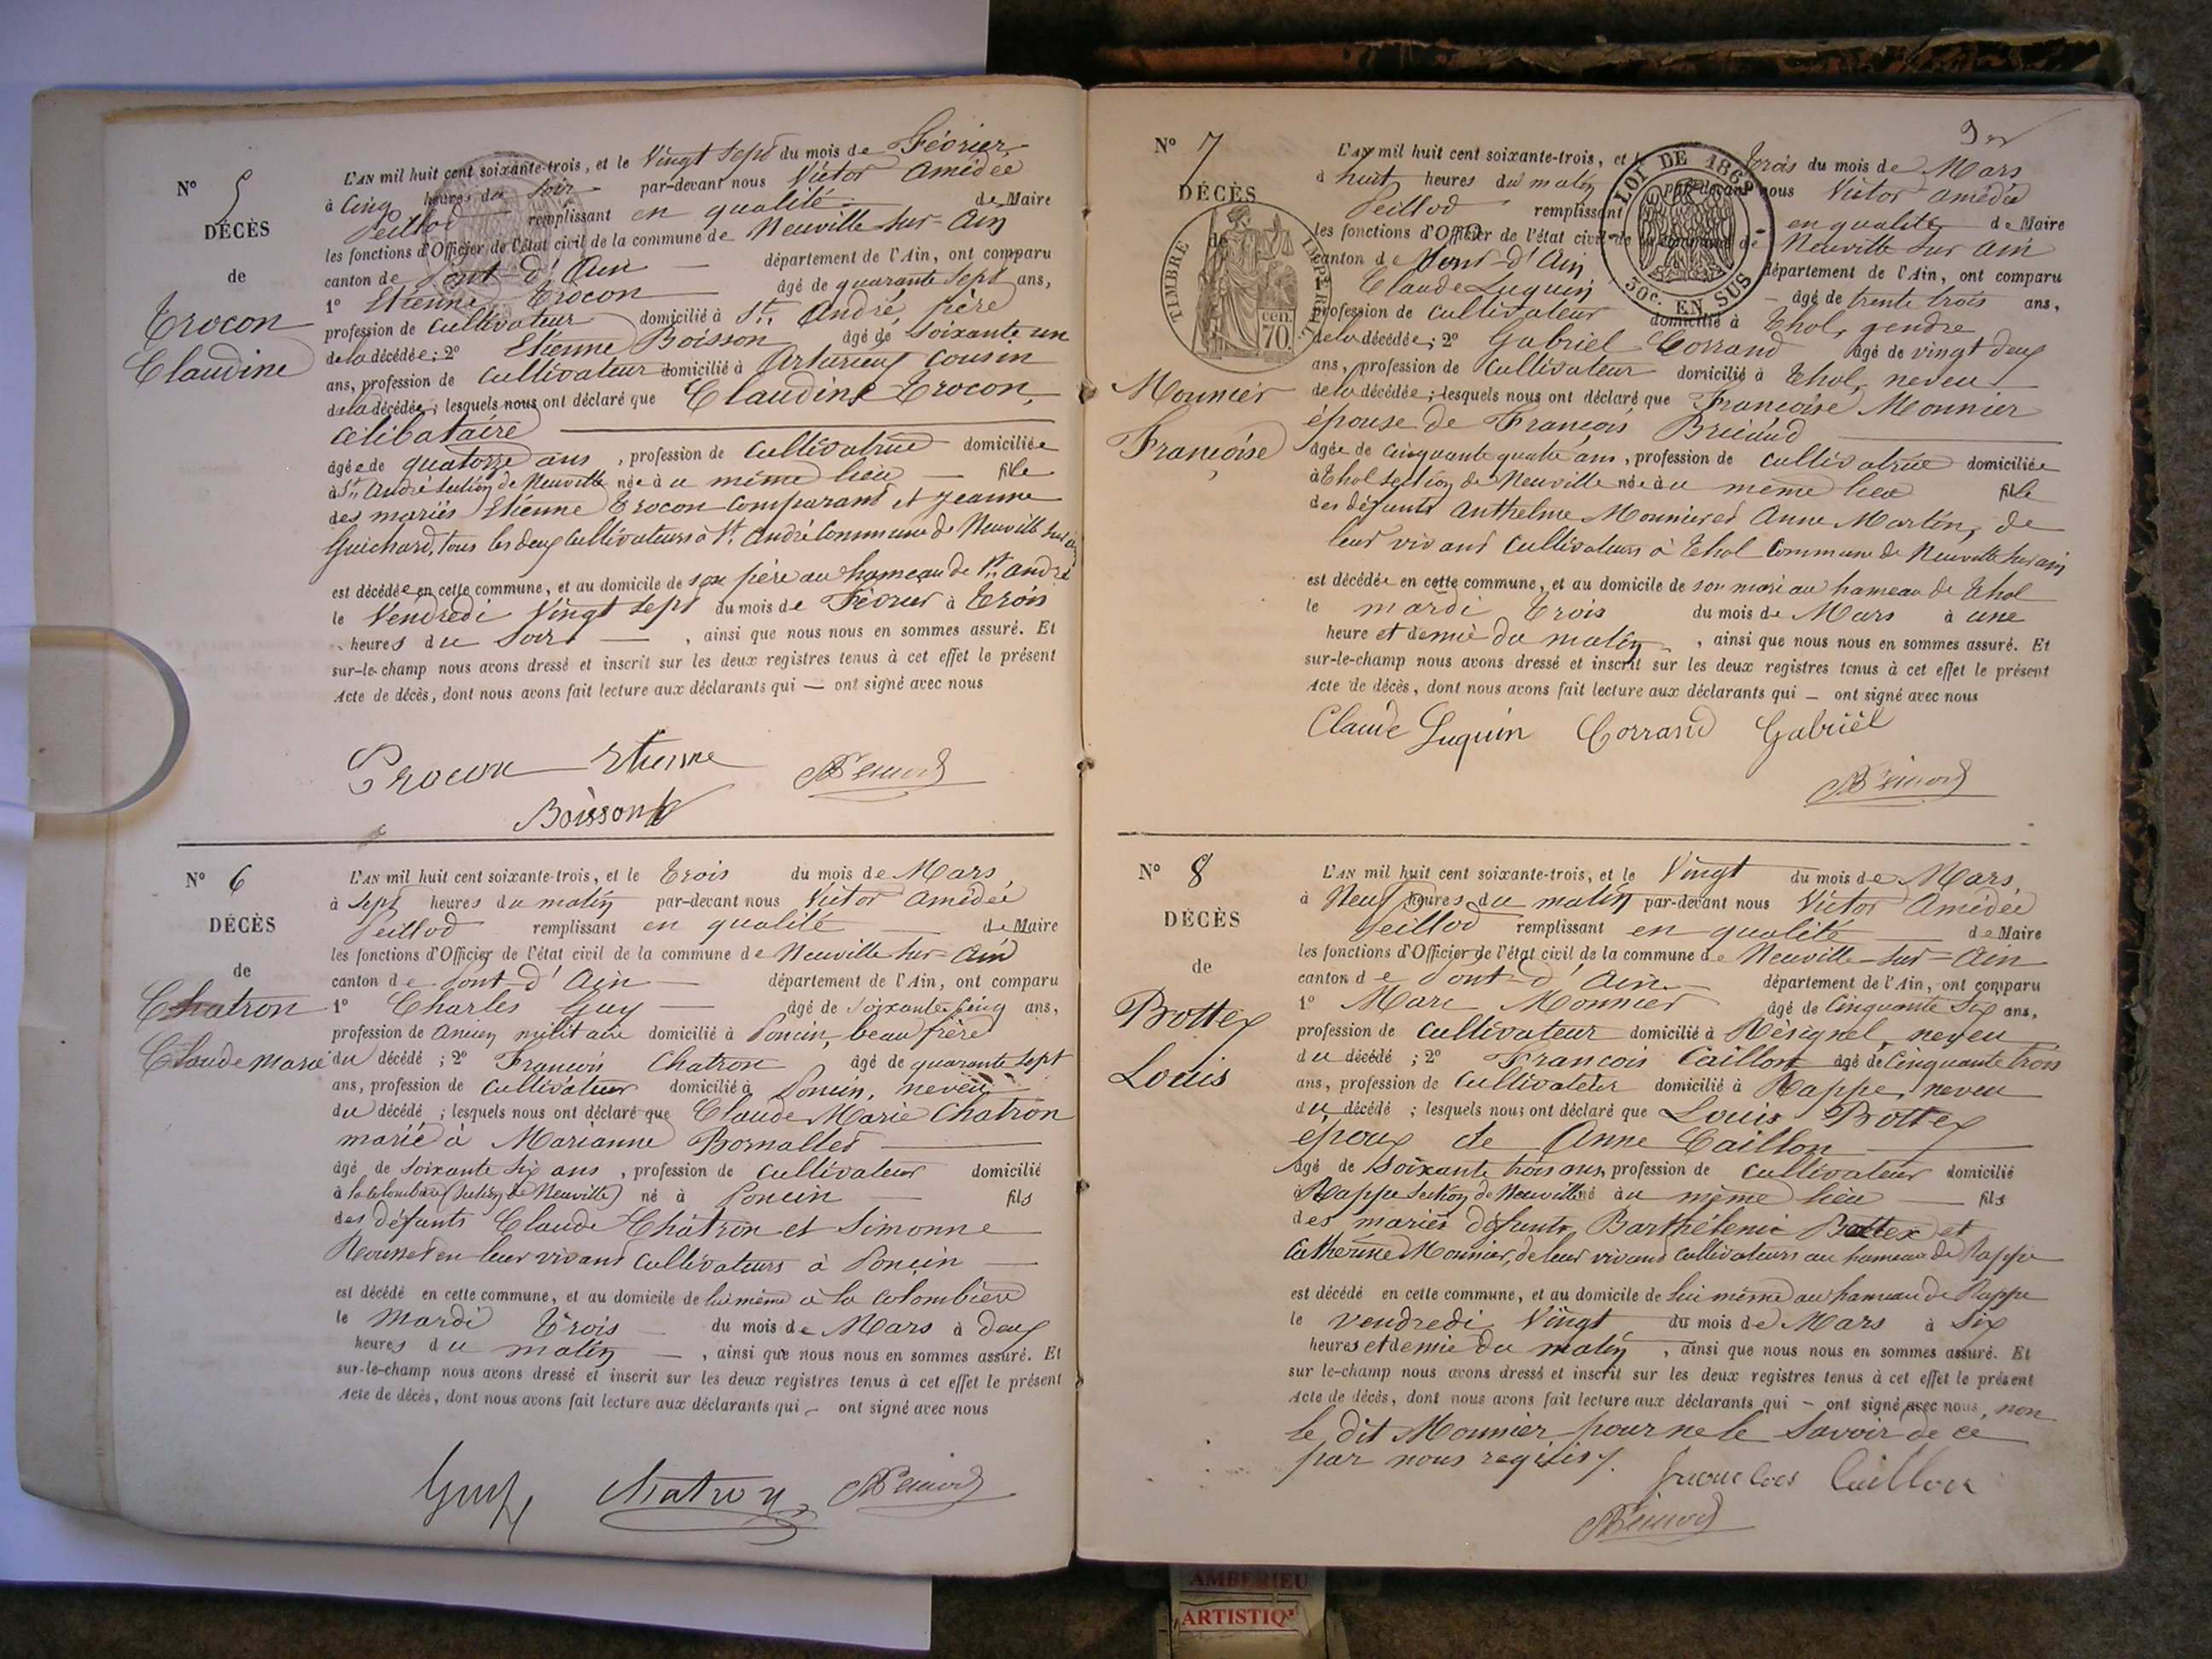 N° 5
DÉCÈS
de
Trocon
Claudine
L'AN mil huit cent soixante-trois, et le Vingt Sept du mois de Février,
à Cinq heures du soir par-devant nous Victor Amédée
Peillod remplissant en qualité de Maire
les fonctions d'Officier de l'état civil de la commune de Neuville sur Ain
canton de Pont-d'Ain département de l'Ain, ont comparu
1° Etienne Trocon âgé de quarante sept ans,
profession de Cultivateur domicilié à St. André, père
de la décédée; 2° Etienne Boisson âgé de soixante un
ans, profession de Cultivateur domicilié à Cousin
de la décédée; lesquels nous ont déclaré que Claudine Trocon,
Célibataire
âgée de quatorze ans, profession de Cultivatrice domiciliée
à St. André section de Neuville née au même lieu fille
des mariés Etienne Trocon comparant et Jeanne
Guichard, tous les deux Cultivateurs à St. André Commune de Neuville sur Ain
est décédée en cette commune, et au domicile de son père au hameau de St. André
le Vendredi Vingt sept du mois de Février à Trois
heures du Soir, ainsi que nous nous en sommes assuré. Et
sur-le-champ nous avons dressé et inscrit sur les deux registres tenus à cet effet le présent
Acte de décès, dont nous avons fait lecture aux déclarants qui — ont signé avec nous
Trocon Etienne
Boisson
N° 6
DÉCÈS
de
Chatron
Claude Marie
L'AN mil huit cent soixante-trois, et le Trois du mois de Mars,
à Sept heures du matin par-devant nous Victor Amédée
Peillod remplissant en qualité de Maire
les fonctions d'Officier de l'état civil de la commune de Neuville sur Ain
canton de Pont-d'Ain département de l'Ain, ont comparu
1° Charles Guy âgé de Soixante Cinq ans,
profession de Ancien militaire domicilié à Poncin, beau frère
du décédé; 2° François Chatron âgé de quarante sept
ans, profession de Cultivateur domicilié à Poncin, neveu
du décédé; lesquels nous ont déclaré que Claude Marie Chatron
marié à Marianne
âgé de Soixante six ans, profession de Cultivateur domicilié
à la Colombière (section de Neuville) né à Poncin fils
des défunts Claude Chatron et Simonne
en leur vivant Cultivateurs à Poncin
est décédé en cette commune, et au domicile de lui même à la Colombière
le Mardi Trois du mois de Mars à deux
heures du matin, ainsi que nous nous en sommes assuré. Et
sur-le-champ nous avons dressé et inscrit sur les deux registres tenus à cet effet le présent
Acte de décès, dont nous avons fait lecture aux déclarants qui — ont signé avec nous
Guy Chatron
N° 7
DÉCÈS
de
TIMBRE IMPERIAL
70 cen.
Monnier
Françoise
LOI DE 1862
30c. EN SUS
L'AN mil huit cent soixante-trois, et le Trois du mois de Mars
à huit heures du matin par-devant nous Victor Amédée
Peillod remplissant en qualité de Maire
les fonctions d'Officier de l'état civil de la commune de Neuville sur Ain
canton de Pont-d'Ain département de l'Ain, ont comparu
1° Claude Luquin âgé de trente trois ans,
profession de Cultivateur domicilié à Thol, gendre
de la décédée; 2° Gabriel Corrand âgé de vingt deux
ans, profession de Cultivateur domicilié à Thol, neveu
de la décédée; lesquels nous ont déclaré que Françoise Monnier
épouse de François
âgée de cinquante quatre ans, profession de cultivatrice domiciliée
à Thol section de Neuville née au même lieu fille
des défunts Anthelme Monnier et Anne Martin, de
leur vivant Cultivateurs à Thol Commune de Neuville sur ain
est décédée en cette commune, et au domicile de son mari au hameau de Thol
le mardi Trois du mois de Mars à une
heure et demie du matin, ainsi que nous nous en sommes assuré. Et
sur-le-champ nous avons dressé et inscrit sur les deux registres tenus à cet effet le présent
Acte de décès, dont nous avons fait lecture aux déclarants qui — ont signé avec nous
Claude Luquin Corrand Gabriel
N° 8
DÉCÈS
de
Bottex
Louis
L'AN mil huit cent soixante-trois, et le Vingt du mois de Mars,
à Neuf heures du matin par-devant nous Victor Amédée
Peillod remplissant en qualité de Maire
les fonctions d'Officier de l'état civil de la commune de Neuville-sur-Ain
canton de Pont-d'Ain département de l'Ain, ont comparu
1° Marc Monnier âgé de Cinquante Six ans,
profession de Cultivateur domicilié à Résignel, neveu
du décédé; 2° François Caillon âgé de Cinquante trois
ans, profession de Cultivateur domicilié à Rappe, neveu
du décédé; lesquels nous ont déclaré que Louis Bottex
époux de Anne Caillon
âgé de Soixante trois ans, profession de cultivateur domicilié
à Rappe section de Neuville né au même lieu fils
des mariés défunts Barthélemie Bottex et
Catherine Monnier, de leur vivant cultivateurs au hameau de Rappe
est décédé en cette commune, et au domicile de lui même au hameau de Rappe
le vendredi Vingt du mois de Mars à Six
heures et demie du matin, ainsi que nous nous en sommes assuré. Et
sur le-champ nous avons dressé et inscrit sur les deux registres tenus à cet effet le présent
Acte de décès, dont nous avons fait lecture aux déclarants qui — ont signé avec nous, non
le dit Monnier pour ne le Savoir de ce
par nous requis.
Caillon
AMBERIEU
ARTISTIQ'